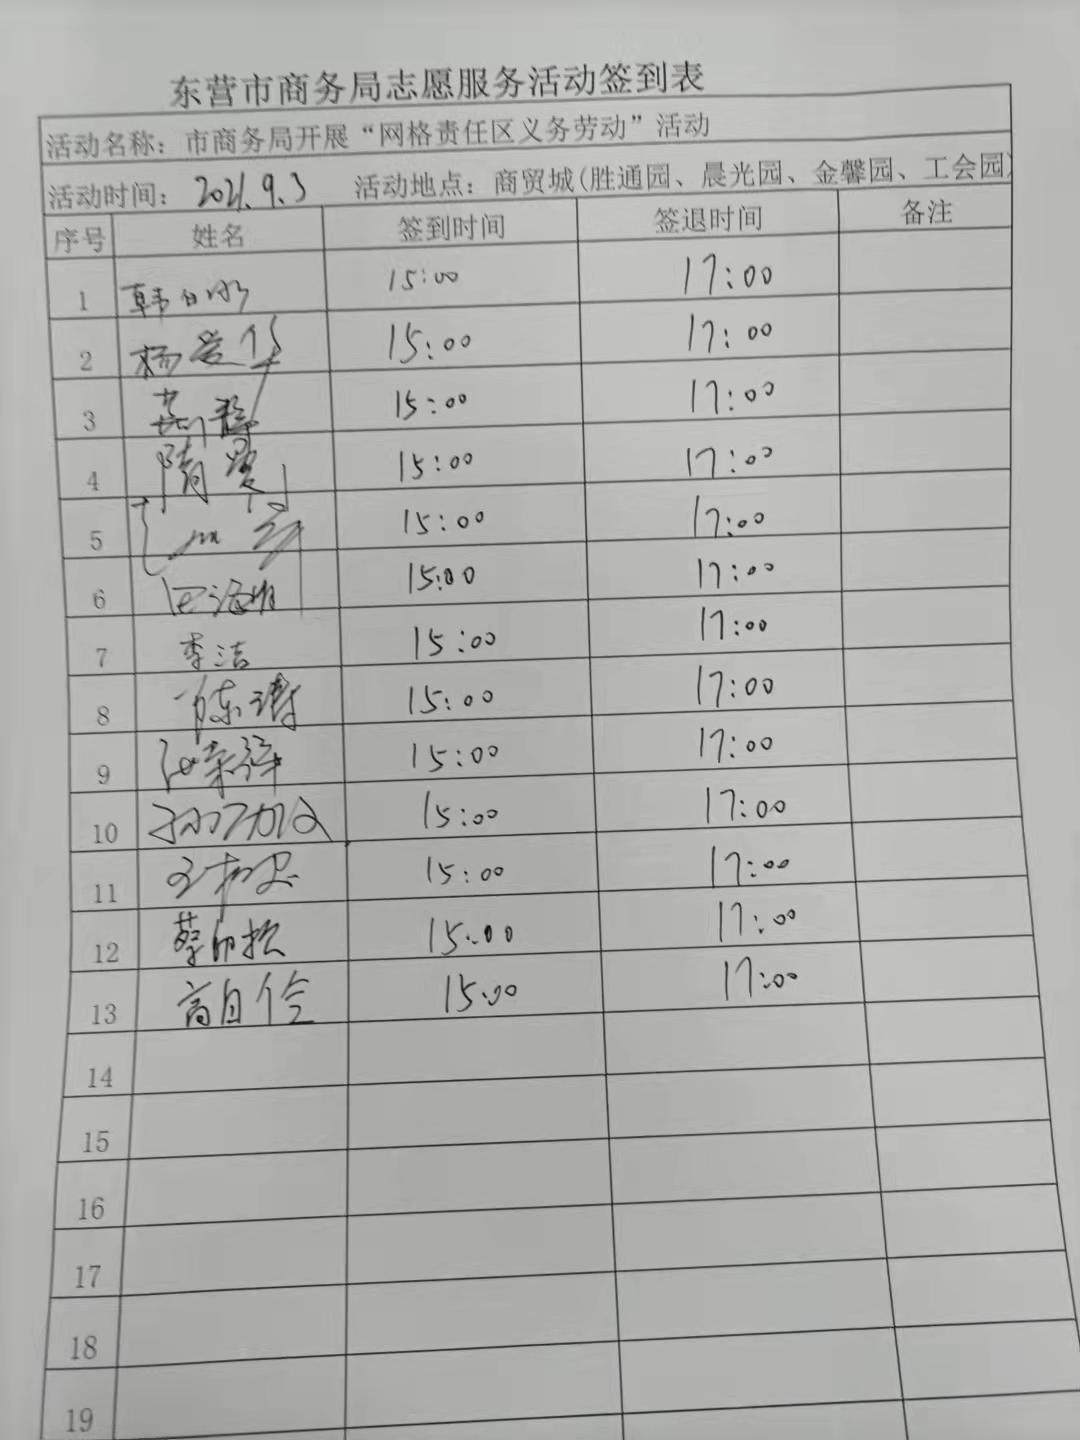 东营市商务局志愿服务活动签到表
活动名称：市商务局开展“网格责任区义务劳动”活动
活动时间： 2021.9.3 活动地点：商贸城(胜通园、晨光园、金馨园、工会园)
序号 姓名 签到时间 签退时间 备注
1 韩 15:00 17:00
2 杨爱华 15:00 17:00
3 15:00 17:00
4 隋 15:00 17:00
5 15:00 17:00
6 15:00 17:00
7 李洁 15:00 17:00
8 陈 15:00 17:00
9 15:00 17:00
10 孙 15:00 17:00
11 15:00 17:00
12 蔡 15:00 17:00
13 高自 15:00 17:00
14
15
16
17
18
19